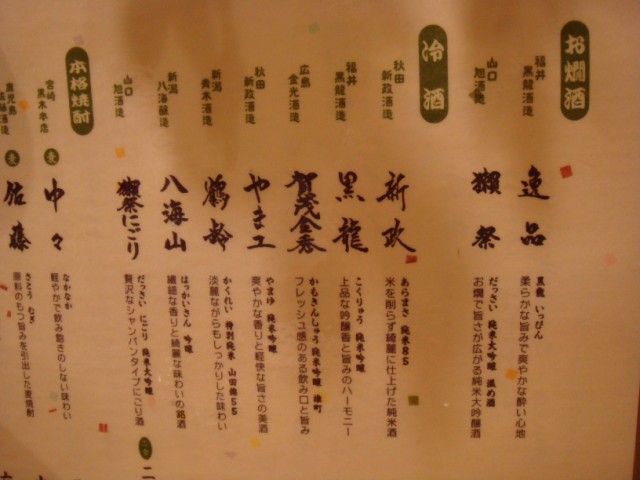 お燗酒
福井
黒龍酒造
逸品
黒龍 いっぴん
柔らかな旨みで爽やかな酔い心地
山口
旭酒造
獺祭
だっさい 純米大吟醸 温め酒
お燗で旨さが広がる純米大吟醸酒
冷酒
秋田
新政酒造
新政
あらまさ 純米85
米を削らず綺麗に仕上げた純米酒
福井
黒龍酒造
黒龍
こくりゅう 純米吟醸
上品な吟醸香と旨みのハーモニー
広島
金光酒造
賀茂金秀
かもきんしゅう 純米吟醸 雄町
フレッシュ感のある飲み口と旨み
秋田
新政酒造
やまユ
やまゆ 純米吟醸
爽やかな香りと軽快な旨さの美酒
新潟
青木酒造
鶴齢
かくれい 特別純米 山田錦55
淡麗ながらもしっかりした味わい
新潟
八海醸造
八海山
はっかいさん 吟醸
繊細な香りと綺麗な味わいの銘酒
山口
旭酒造
獺祭にごり
だっさい にごり 純米大吟醸
贅沢なシャンパンタイプにごり酒
本格焼酎
宮崎
黒木本店
麦
中々
なかなか
軽やかで飲み飽きのしない味わい
鹿児島
麦
佐藤
さとう むぎ
原料のもつ旨みを引出した麦焼酎